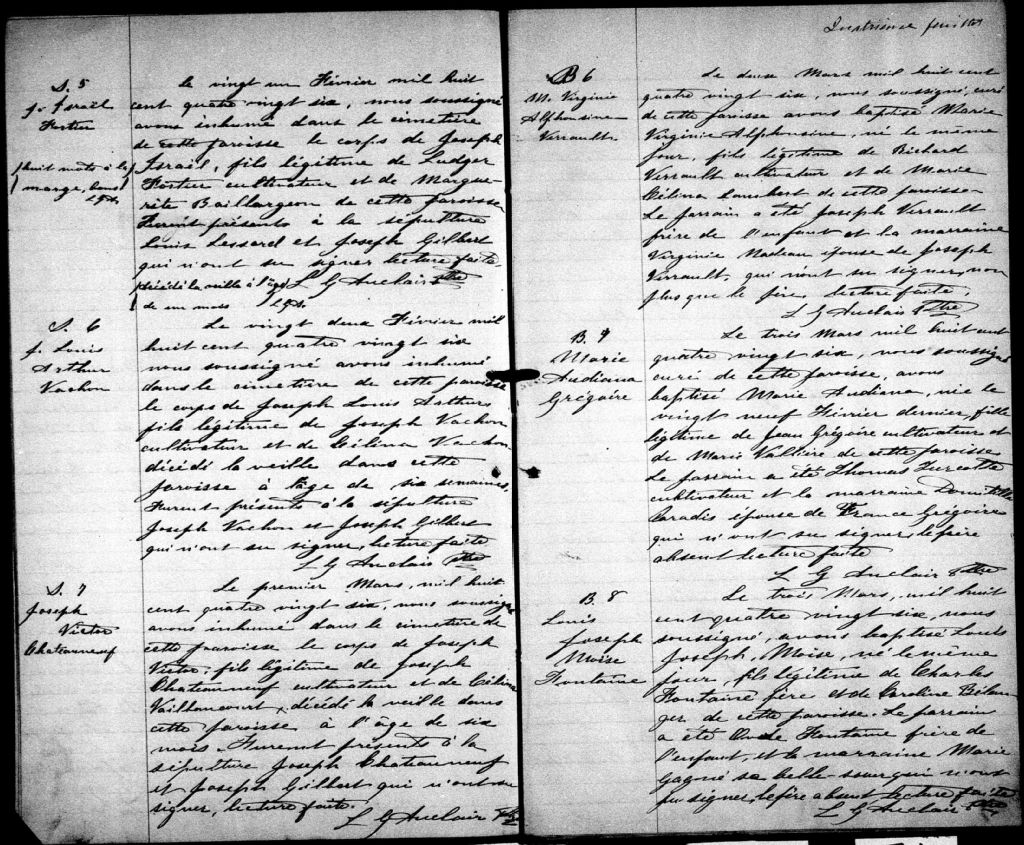 S. 5
J. Israël
Fortier
huit mots à la
marge, bons
Le vingt un Février mil huit
cent quatre vingt six, nous soussigné
avons inhumé dans le cimetière
de cette paroisse le corps de Joseph
Israël, fils légitime de Ludger
Fortier cultivateur et de Margue-
rite Baillargeon de cette paroisse
Furent présents à la sépulture
Louis Lessard et Joseph Gilbert
qui n'ont su signer lecture faite.
décédé la veille à l'âge
de un mois
L G Auclair Ptre
S. 6
J. Louis
Arthur
Vachon
Le vingt deux Février mil
huit cent quatre vingt six
nous soussigné avons inhumé
dans le cimetière de cette paroisse
le corps de Joseph Louis Arthur,
fils légitime de Joseph Vachon
cultivateur et de Célina Vachon,
décédé la veille dans cette
paroisse à l'âge de six semaines.
Furent présents à la sépulture
Joseph Vachon et Joseph Gilbert
qui n'ont su signer, lecture faite
L G Auclair Ptre
S. 7
Joseph
Victor
Chateauneuf
Le premier Mars, mil huit
cent quatre vingt six, nous soussigné
avons inhumé dans le cimetière de
cette paroisse le corps de Joseph
Victor, fils légitime de Joseph
Chateauneuf cultivateur et de Célina
Vaillancourt, décédé la veille dans
cette paroisse à l'âge de six
mois. Furent présents à la
sépulture Joseph Chateauneuf
et Joseph Gilbert qui n'ont su
signer, lecture faite.
L G Auclair Ptre
B 6
M. Virginie
Alphonsine
Verrault
Le deux Mars mil huit cent
quatre vingt six, nous soussigné, curé
de cette paroisse avons baptisé Marie
Virginie Alphonsine, né le même
jour, fils légitime de Richard
Verrault cultivateur et de Marie
Célina Lambert de cette paroisse
Le parrain a été Joseph Verrault
frère de l'enfant et la marraine
Virginie Nadeau épouse de Joseph
Verrault, qui n'ont su signer, non
plus que le père, lecture faite.
L G Auclair Ptre
B. 7
Marie
Audiana
Grégoire
Le trois Mars mil huit cent
quatre vingt six, nous soussigné
curé de cette paroisse, avons
baptisé Marie Audiana, née le
vingt neuf Février dernier, fille
légitime de Jean Grégoire cultivateur et
de Marie Vallière de cette paroisse
Le parrain a été Thomas Turcotte
cultivateur et la marraine Domitille
Paradis épouse de France Grégoire
qui n'ont su signer, le père
absent lecture faite
L G Auclair Ptre
B. 8
Louis
Joseph
Moïse
Fontaine
Le trois Mars, mil huit
cent quatre vingt six, nous
soussigné, avons baptisé Louis
Joseph, Moïse, né le même
jour, fils légitime de Charles
Fontaine père et de Caroline Bélan-
ger de cette paroisse. Le parrain
a été Fontaine frère de
l'enfant, et la marraine Marie
Gagné sa belle-soeur qui n'ont
pu signer, le père absent lecture faite
L G Auclair Ptre